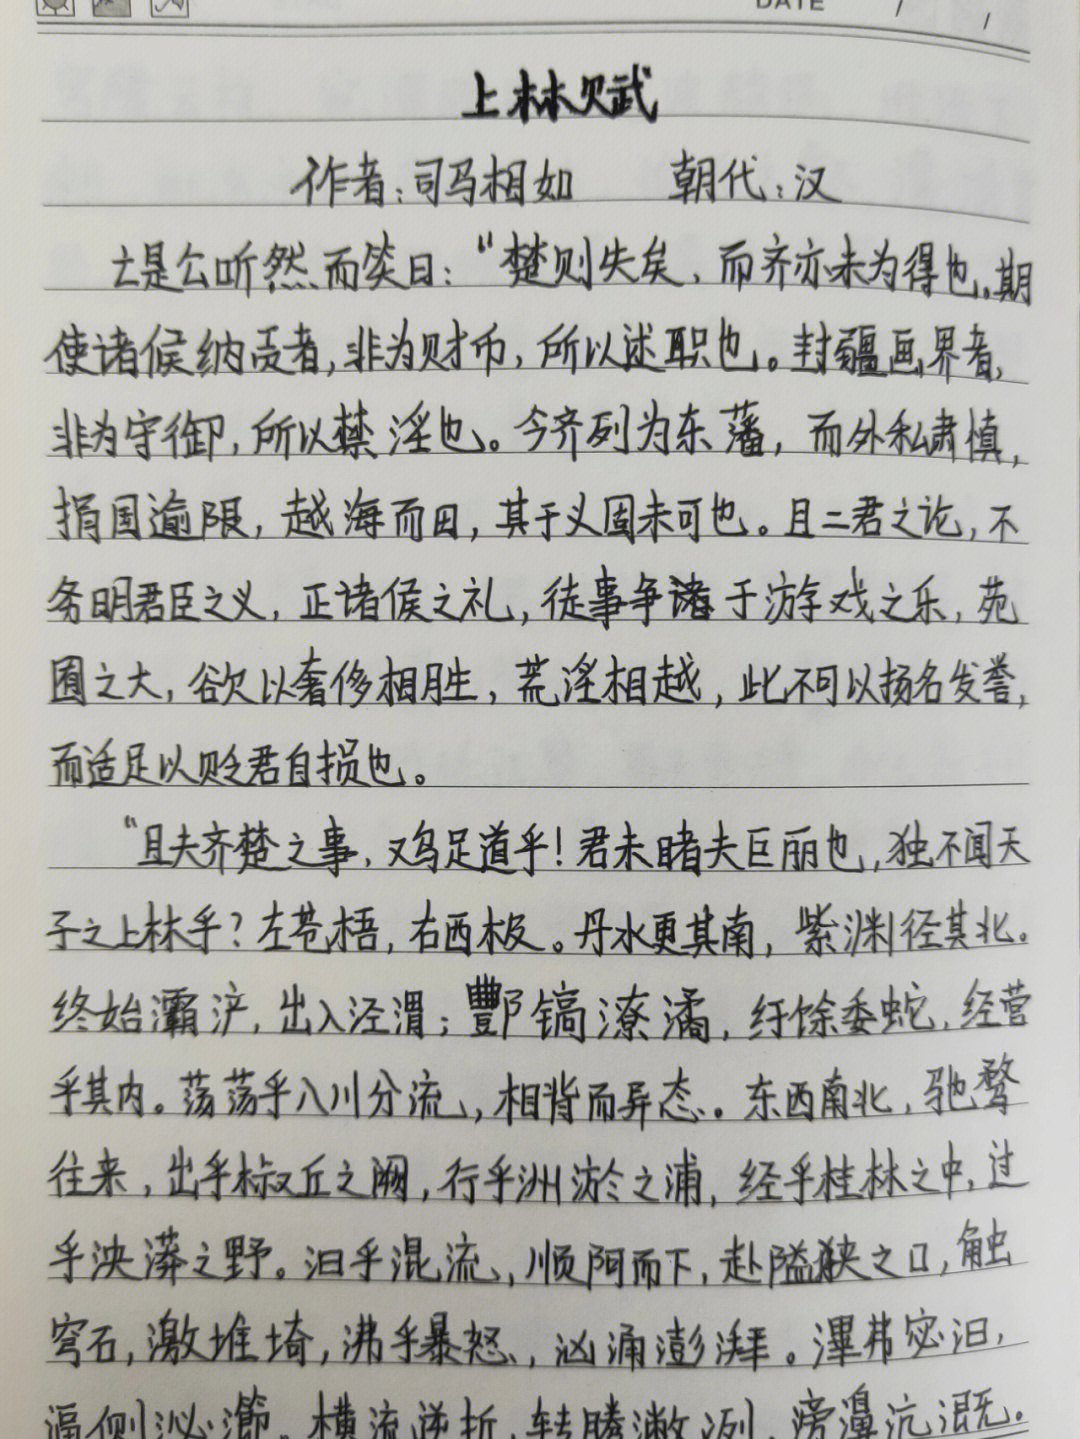 DATE / /
上林赋
作者：司马相如 朝代：汉
亡是公听然而笑曰：“楚则失矣，而齐亦未为得也。期
使诸候纳贡者，非为财币，所以述职也。封疆画界者，
非为守御，所以禁淫也。今齐列为东藩，而外私肃慎，
捐国逾限，越海而田，其于义固未可也。且二君之论，不
务明君臣之义，正诸侯之礼，徒事争诸于游戏之乐，苑
囿之大，欲以奢侈相胜，荒淫相越，此不可以扬名发誉，
而适足以贬君自损也。
“且夫齐楚之事，又乌足道乎！君未睹夫巨丽也，独不闻天
子之上林乎？左苍梧，右西极。丹水更其南，紫渊径其北。
终始灞浐，出入泾渭；酆镐潦潏，纡馀委蛇，经营
乎其内。荡荡乎八川分流，相背而异态。东西南北，驰骛
往来，出乎椒丘之阙，行乎洲淤之浦，经乎桂林之中，过
乎泱漭之野。汩乎混流，顺阿而下，赴隘狭之口，触
穹石，激堆埼，沸乎暴怒，汹涌澎湃。滭弗宓汩，
逼侧泌瀄。横流逆折，转腾潎冽，滂濞沆溉。